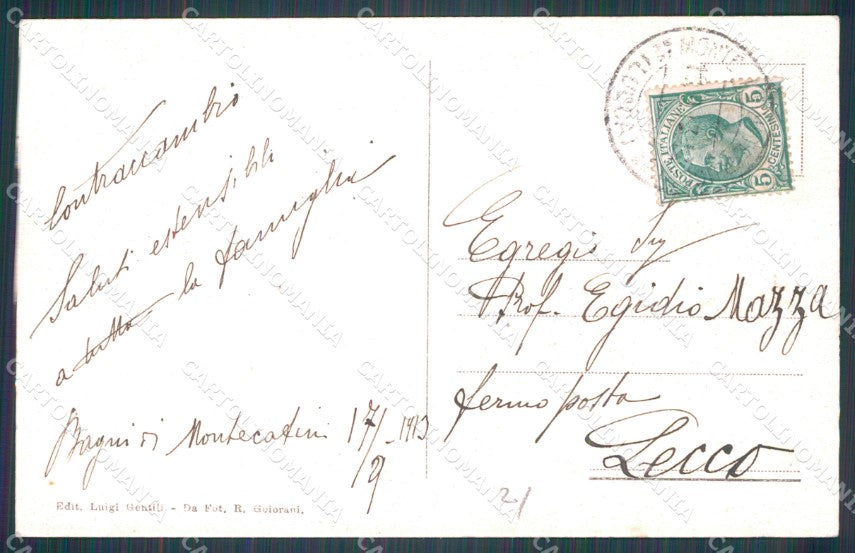 Contraccambio
Saluti estensibili
a tutta la famiglia
Bagni di Montecatini 17/9 - 1913
Edit. Luigi Gentili. - Da Fot. R. Goiorani.
POSTE ITALIANE
CENTESIMI
5 5
Egregio Sig
Prof. Egidio Mazza
fermo posta
Lecco
21
CARTOLINOMANIA